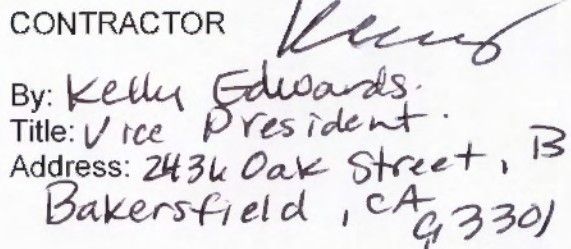 CONTRACTOR
By: Kelly Edwards.
Title: Vice President.
Address: Oak Street, B
Bakersfield, CA
93301